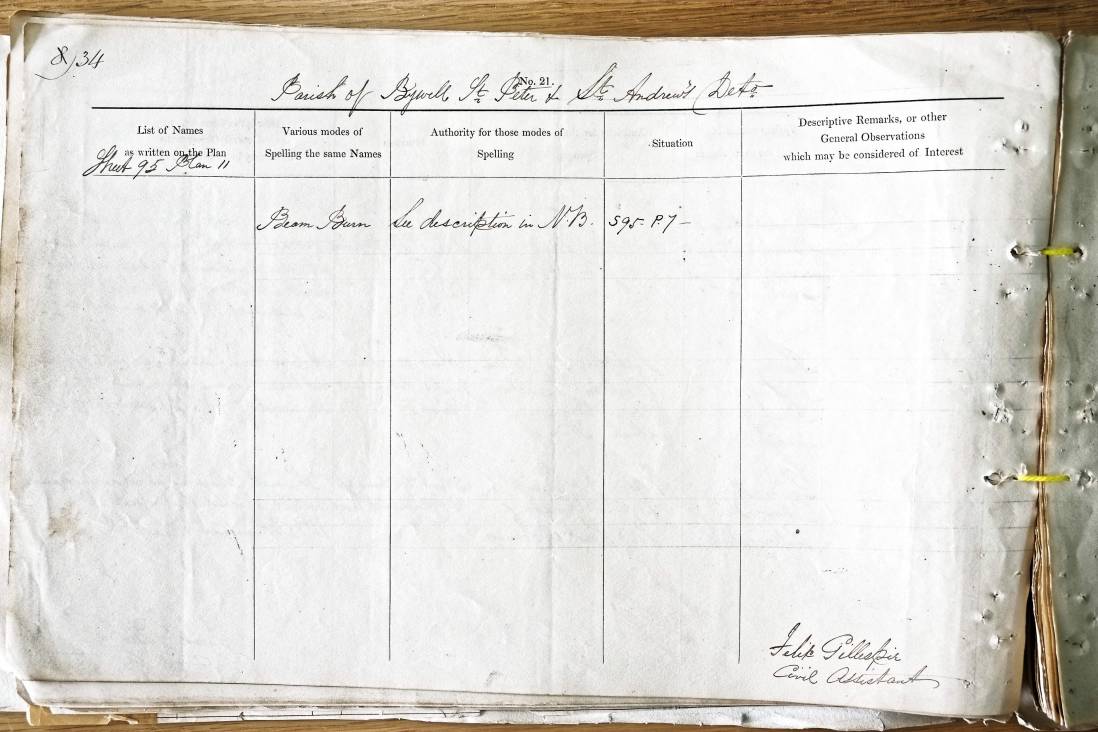 34
No. 21.
Parish of Bywell St. Peter & St. Andrew's Deto.
List of Names
as written on the Plan
Sheet 95 Plan 11
Various modes of
Spelling the same Names
Authority for those modes of
Spelling
Situation
Descriptive Remarks, or other
General Observations
which may be considered of Interest
Beam Burn
See description in N.B.
S95 P.7
Felix Gillespie
Civil Assistant